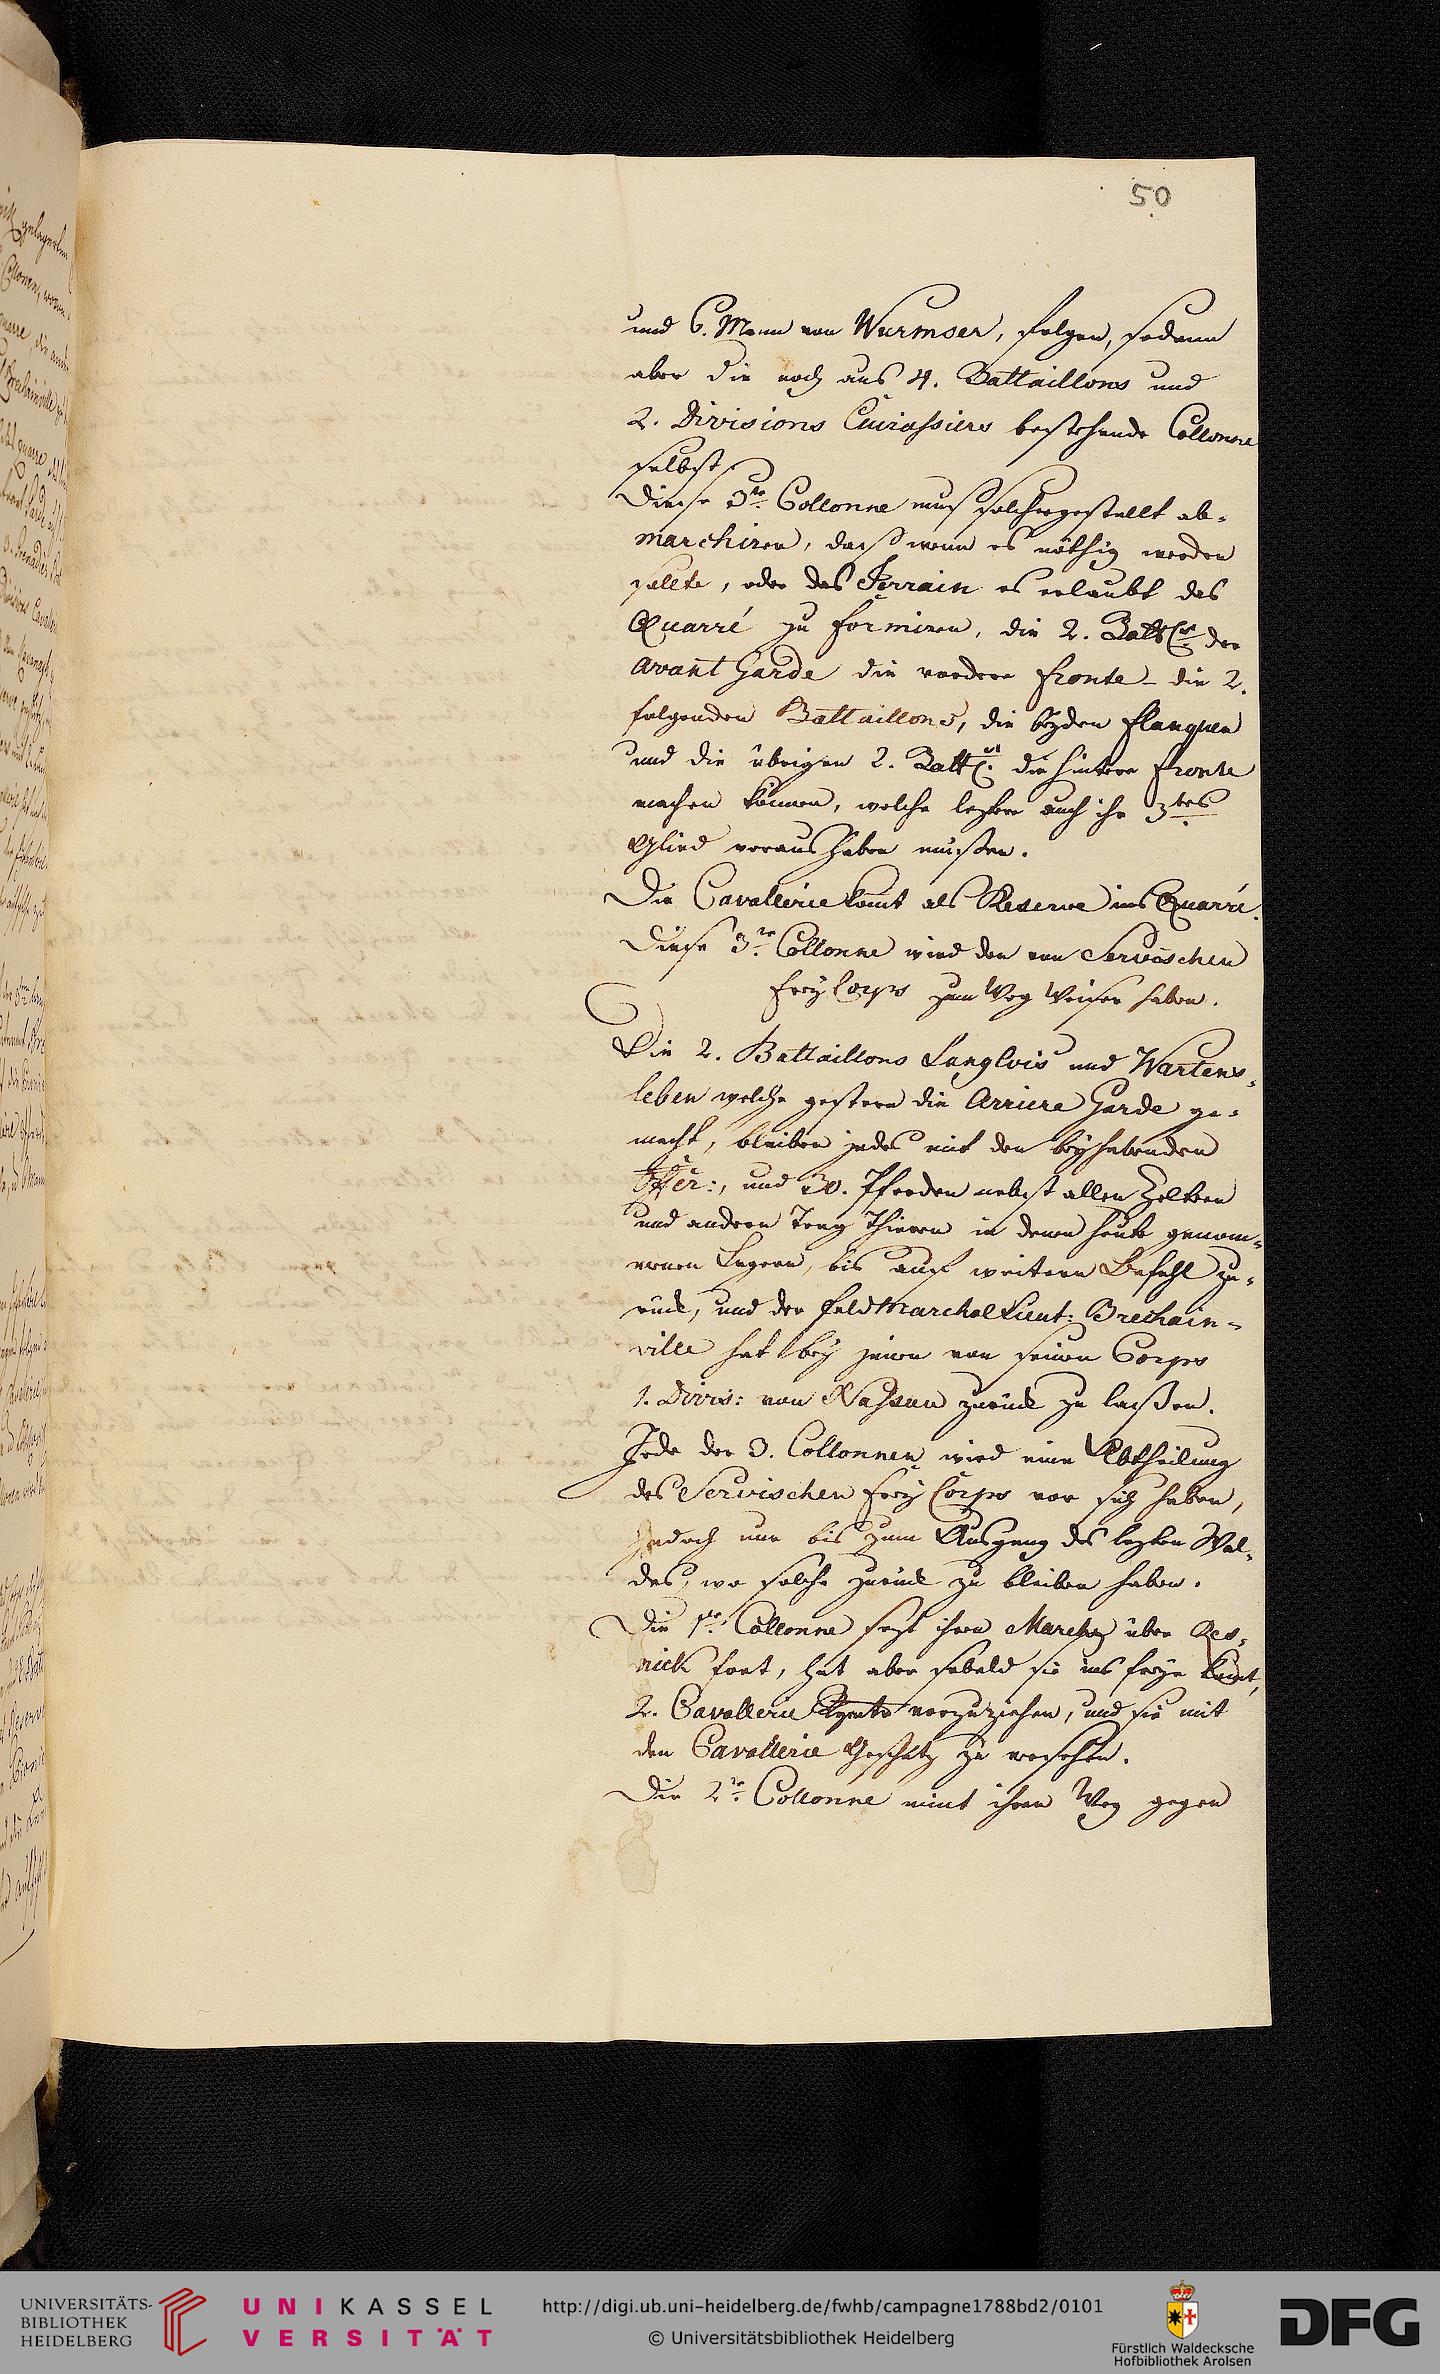 50
und 6. Mann von Wurmser, folgen, sodann
aber die noch aus 4. Battaillons und
2. Divisions Cuirassiers bestehende Collonne
selbst.
Diese 3te Collonne muß solchergestallt ab-
marchiren, daß wenn es nöthig werden
sollte, oder das Terrain es erlaubt das
Quarré zu formiren, die 2. Batts der
avant Garde die vordere Fronte die 2.
folgenden Battaillons, die beyden Flanquen
und die übrigen 2. Batt: die hintere Fronte
machen können, welche leztere auch ihr 3tes
Glied voraus haben müßen.
Die Cavallerie komt als Reserve ins Quarré.
Diese 3te Collonne wird den von Servischen
Frey Corps zum Weg Weiser haben.
Die 2. Battaillons Langlois und Wartens-
leben welche gestern die Arriere Garde ge-
macht, bleiben jedes mit den beyhabenden
Offer:, und 30. Pferden nebst allen Zeltern
und andern Trag Thieren in denen heute genom-
menen Lagern, bis auf weitern Befehl zu-
rück, und der FeldMarchalLieut: Brechain-
ville hat bey jenen von seinen Corps
1. Divis: von Nassau zurück zu laßen.
Jede der 3. Collonnen wird eine Abtheilung
des Servischen Frey Corps vor sich haben,
jedoch nur bis zum Ausgang des lezten Wal-
des, wo solche zurück zu bleiben haben.
Die 1te Collonne sezt ihren March über Res-
nick fort, hat aber sobald sie ins freye komt,
2. Cavallerie Rgmts vorzuziehen, und sie mit
den Cavallerie Geschütz zu versehen.
Die 2te Collonne nimt ihren Weg gegen
UNIVERSITÄTS-
BIBLIOTHEK
HEIDELBERG
UNIKASSEL
VERSITÄT
http://digi.ub.uni-heidelberg.de/fwhb/campagne1788bd2/0101
© Universitätsbibliothek Heidelberg
Fürstlich Waldecksche
Hofbibliothek Arolsen
DFG